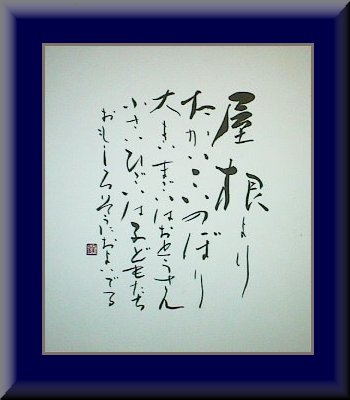 屋根より
たかいこいのぼり
大きいまごいはおとうさん
小さいひごいは子どもたち
おもしろそうにおよいでる